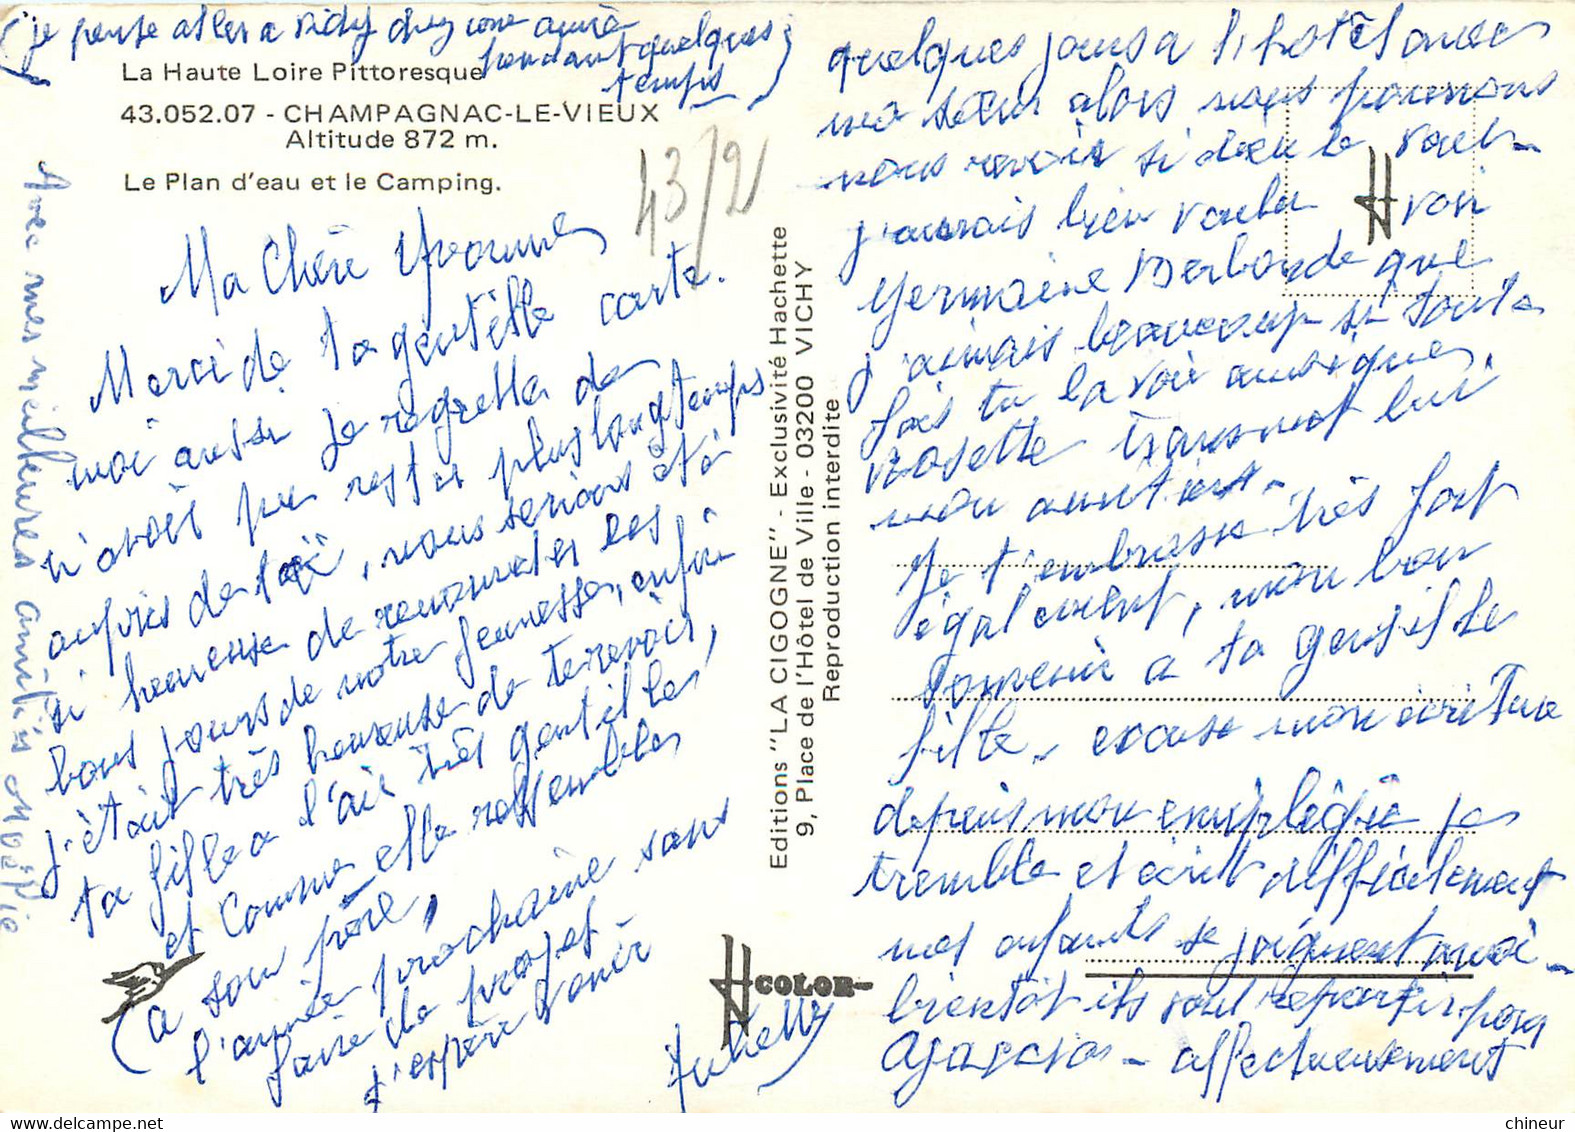 (je pense aller a Vichy chez une amie
pendant quelques
temps)
La Haute Loire Pittoresque
43.052.07 - CHAMPAGNAC-LE-VIEUX
Altitude 872 m.
Le Plan d'eau et le Camping.
43/2
Ma Chère Yvonne
Merci de ta gentille carte.
moi aussi je regrette de
n'avoir pu rester plus longtemps
auprès de toi, nous serions été
si heureuse de renouveler les
bons jours de notre jeunesse, enfin
j'étais très heureuse de te revoir,
ta fille a l'air très gentille
et comme elle ressemble
a son père,
l'année prochaine sans
faire de projet
j'espère venir
Avec mes meilleures amitiés
Editions "LA CIGOGNE" - Exclusivité Hachette
9, Place de l'Hôtel de Ville - 03200 VICHY
Reproduction interdite
H COLOR
H
quelques jours a l'hotel avec
ma sœur alors nous pourrons
nous revoir si dieu le veut -
j'aurais bien voulu voir
Germaine que
j'aimais beaucoup si toute
fois tu la voie ainsi que
Rosette transmet lui
mon amitiés -
Je t'embrasse très fort
également, mon bon
souvenir a ta gentille
fille, excuse mon écriture
depuis mon emiplégie je
tremble et écrit difficilement
mes enfants se joignent a moi -
bientôt ils vont repartir pour
Ajaccio - affectueusement
Juliette
chineur